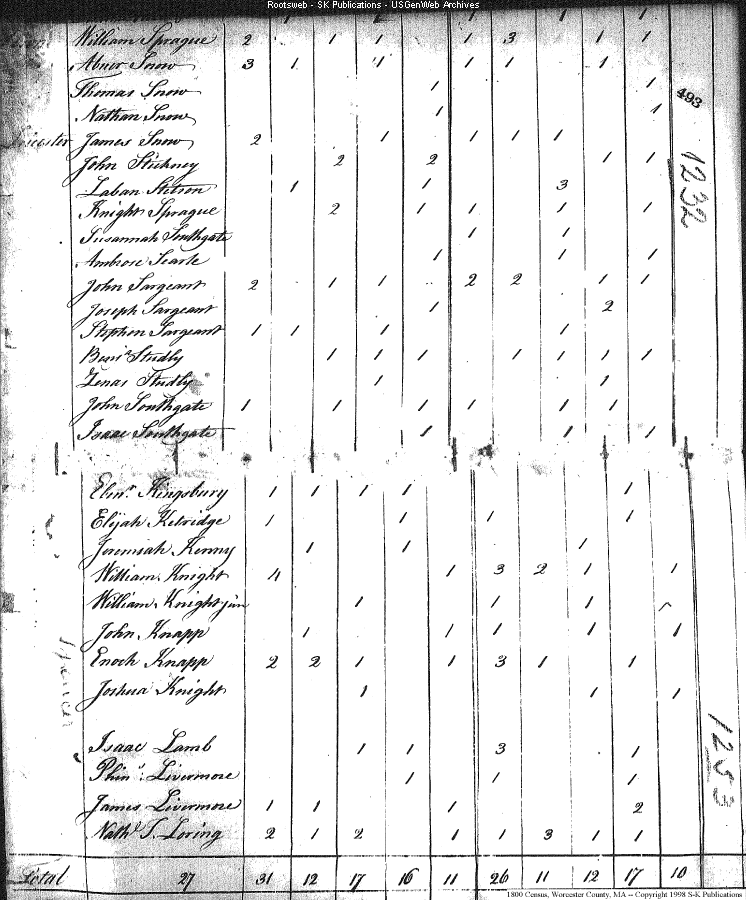 Rootsweb - SK Publications - USGenWeb Archives
William Sprague 2 1 1 1 3 1 1
Abner Snow 3 1 1 1 1 1
Thomas Snow 1 1
493
Nathan Snow 1 1
Leicester James Snow 2 1 1 1 1
John Stickney 2 2 1 1
1232
Laban Stetson 1 1 3
Knight Sprague 2 1 1 1 1
Susannah Southgate 1 1
Ambrose Searle 1 1 1
John Sargeant 2 1 1 2 2 1 1
Joseph Sargeant 1 2
Stephen Sargeant 1 1 1 1
Benjn Studly 1 1 1 1 1 1 1
Zenas Studly 1 1
John Southgate 1 1 1 1 1 1
Isaac Southgate 1 1 1
Ebenr Kingsbury 1 1 1 1 1
Elijah Ketridge 1 1 1 1
Jeremiah Kenny 1 1 1
William Knight 4 1 3 2 1 1
William Knight jun 1 1 1
John Knapp 1 1 1 1 1
Spencer
Enoch Knapp 2 2 1 1 3 1 1
Joshua Knight 1 1 1
Isaac Lamb 1 1 3 1
1253
Phins Livermore 1 1 1
James Livermore 1 1 1 2
Nathl S. Loring 2 1 2 1 1 3 1 1
Total 27 31 12 17 16 11 26 11 12 17 10
1800 Census, Worcester County, MA -- Copyright 1998 S-K Publications